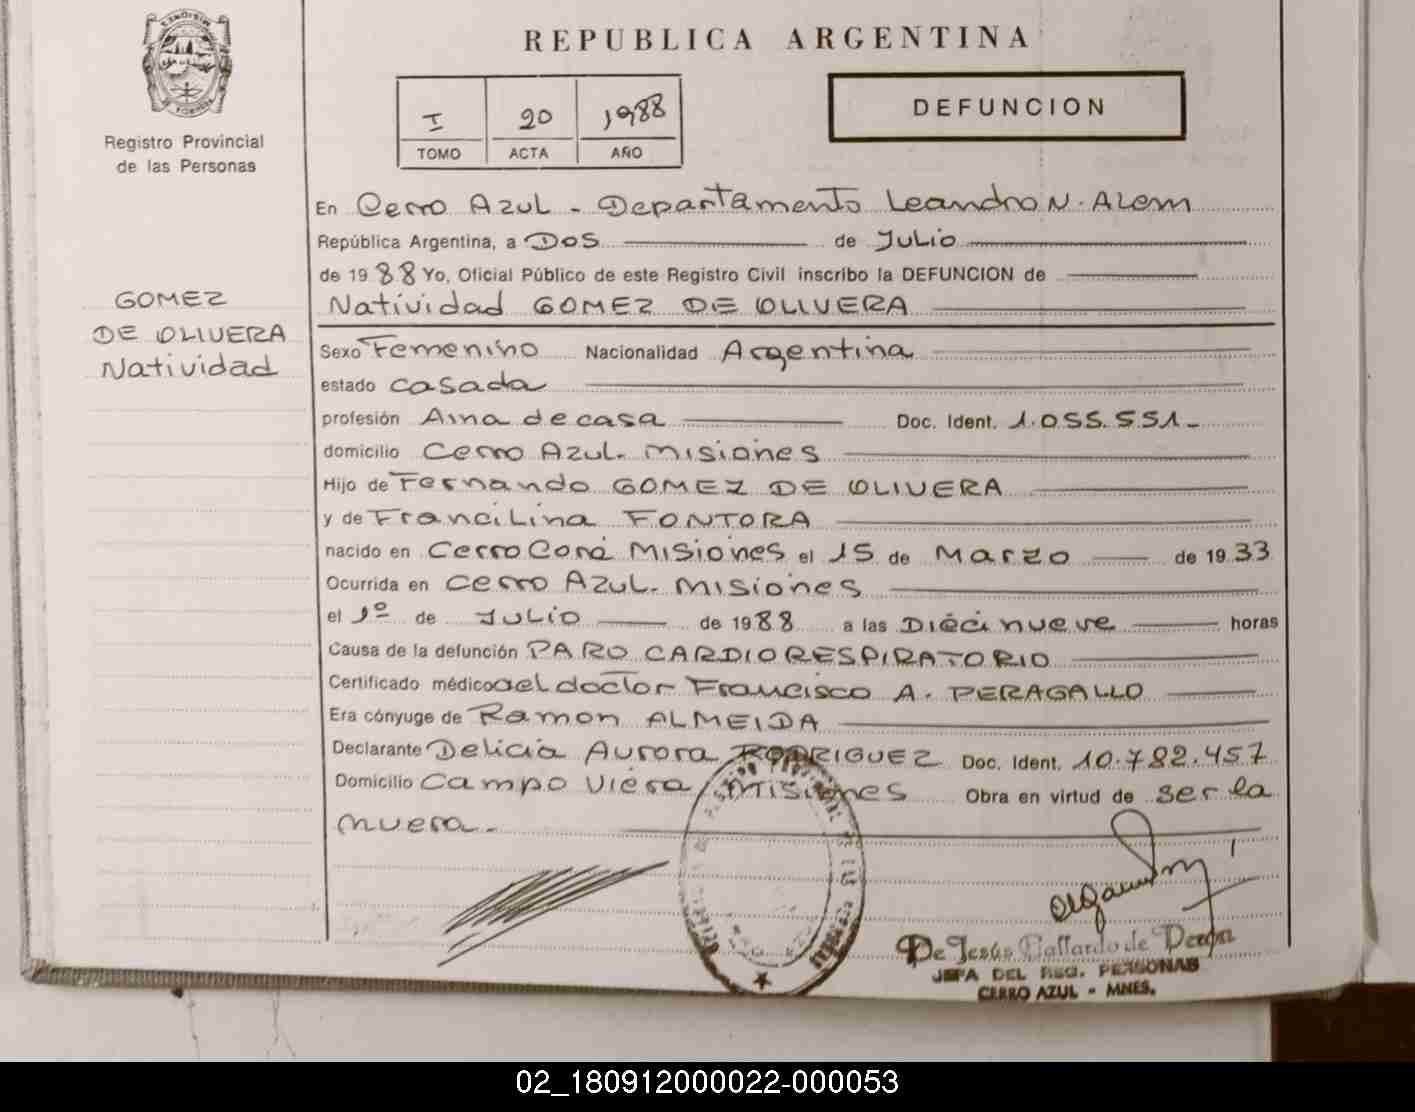 REPUBLICA ARGENTINA
I 20 1988
TOMO ACTA AÑO
DEFUNCION
Registro Provincial
de las Personas
GOMEZ
DE OLIVERA
Natividad
En Cerro Azul - Departamento Leandro N. Alem
República Argentina, a Dos de Julio
de 1988 Yo, Oficial Público de este Registro Civil inscribo la DEFUNCION de
Natividad GOMEZ DE OLIVERA
Sexo Femenino Nacionalidad Argentina
estado casada
profesión Ama de casa Doc. Ident. 1.055.551-
domicilio Cerro Azul. Misiones
Hijo de Fernando GOMEZ DE OLIVERA
y de Francilina FONTORA
nacido en Cerro Corá Misiones el 15 de Marzo de 1933
Ocurrida en Cerro Azul. Misiones
el 1º de Julio de 1988 a las Diecinueve horas
Causa de la defunción PARO CARDIORESPIRATORIO
Certificado médico del doctor Francisco A. PERAGALLO
Era cónyuge de Ramon ALMEIDA
Declarante Delicia Aurora RODRIGUEZ Doc. Ident. 10.782.457
Domicilio Campo Viera Misiones Obra en virtud de ser la
nuera.
De Jesús Gallardo de
JEFA DEL REG. PERSONAS
CERRO AZUL - MNES.
02_180912000022-000053